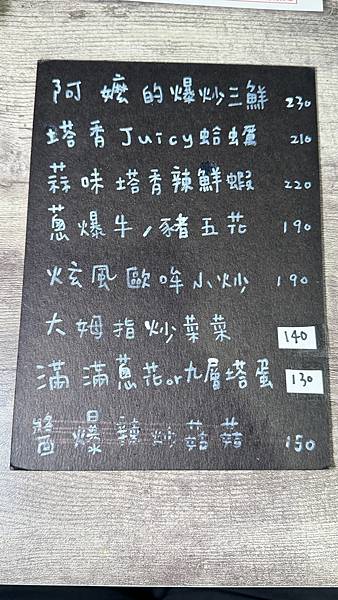 阿嬤的爆炒三鮮 230
塔香Juicy蛤蠣 210
蒜味塔香辣鮮蝦 220
蔥爆牛/豬五花 190
炫風歐哞小炒 190
大姆指炒菜菜 140
滿滿蔥花or九層塔蛋 130
醬爆辣炒菇菇 150